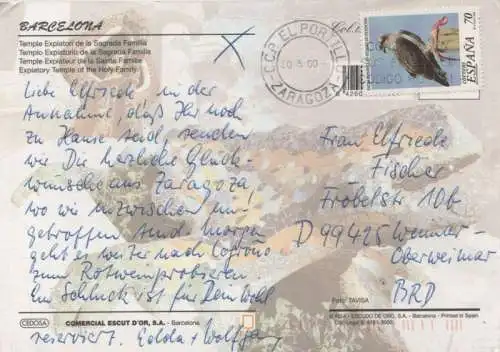 BARCELONA
Temple Expiatori de la Sagrada Familia
Templo Expiatorio de la Sagrada Familia
Temple Expiateur de la Sainte Famille
Expiatory Temple of the Holy Family
CCP EL PORTILLO
ZARAGOZA
ESPAÑA
70
Liebe Elfriede in der
Annahme, daß Ihr noch
zu Hause seid, senden
wir Dir herzliche Glück-
wünsche aus Zaragoza,
wo wir inzwischen ein-
getroffen sind morgen
geht es weiter nach Logroño
zum Rotweinprobieren
Ein Schluck ist für Dein Wohl
reserviert. + Wolfgang
Frau Elfriede
Fischer
Fröbelstr 10b
D 99425 Weimar-
Oberweimar
BRD
Foto: TAVISA
CEDOSA
COMERCIAL ESCUT D'OR, S.A. - Barcelona
ESCUDO DE ORO, S.A. - Barcelona - Printed in Spain